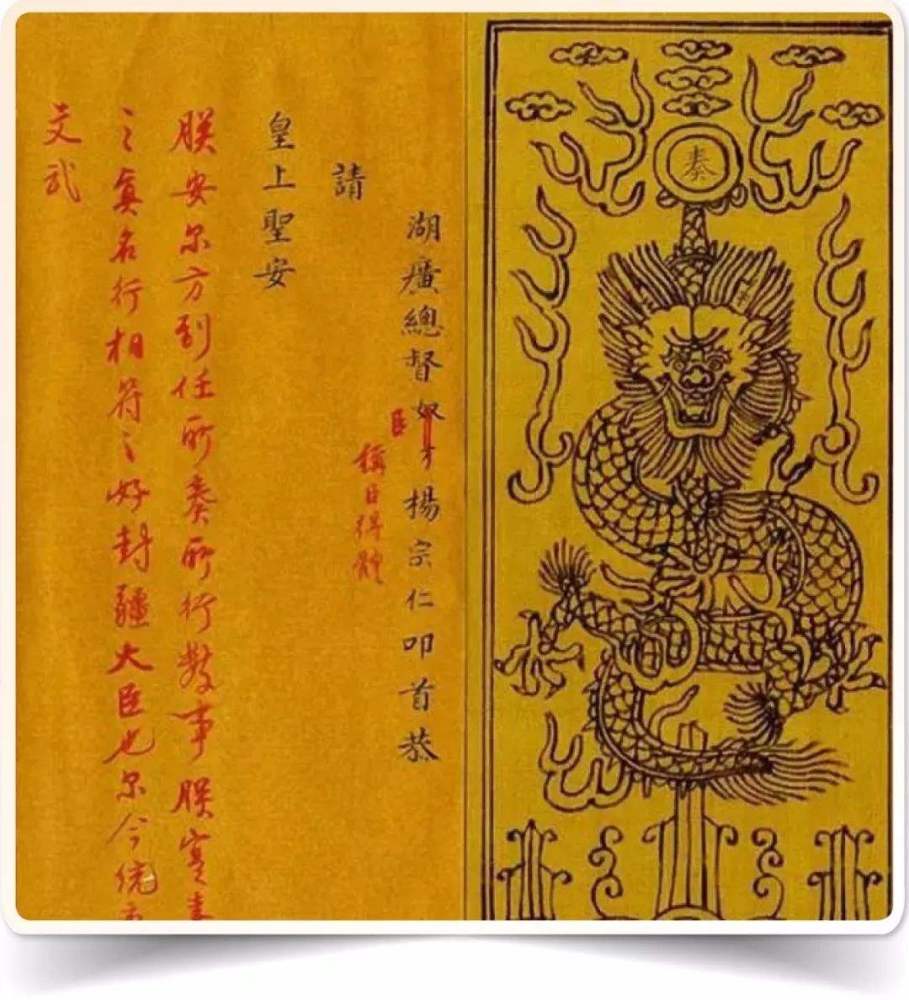 奏
湖廣總督奴才楊宗仁叩首恭
臣
稱臣得體
請
皇上聖安
朕安尔方到任所奏所行數事朕寔
之真名行相符之好封疆大臣也尔今統
文武